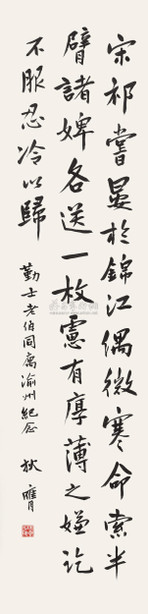 宋祁嘗晏於錦江偶微寒命索半
臂諸婢各送一枚慮有厚薄之嫌訖
不服忍冷以歸
勤士老伯同屬渝州紀念 狄膺